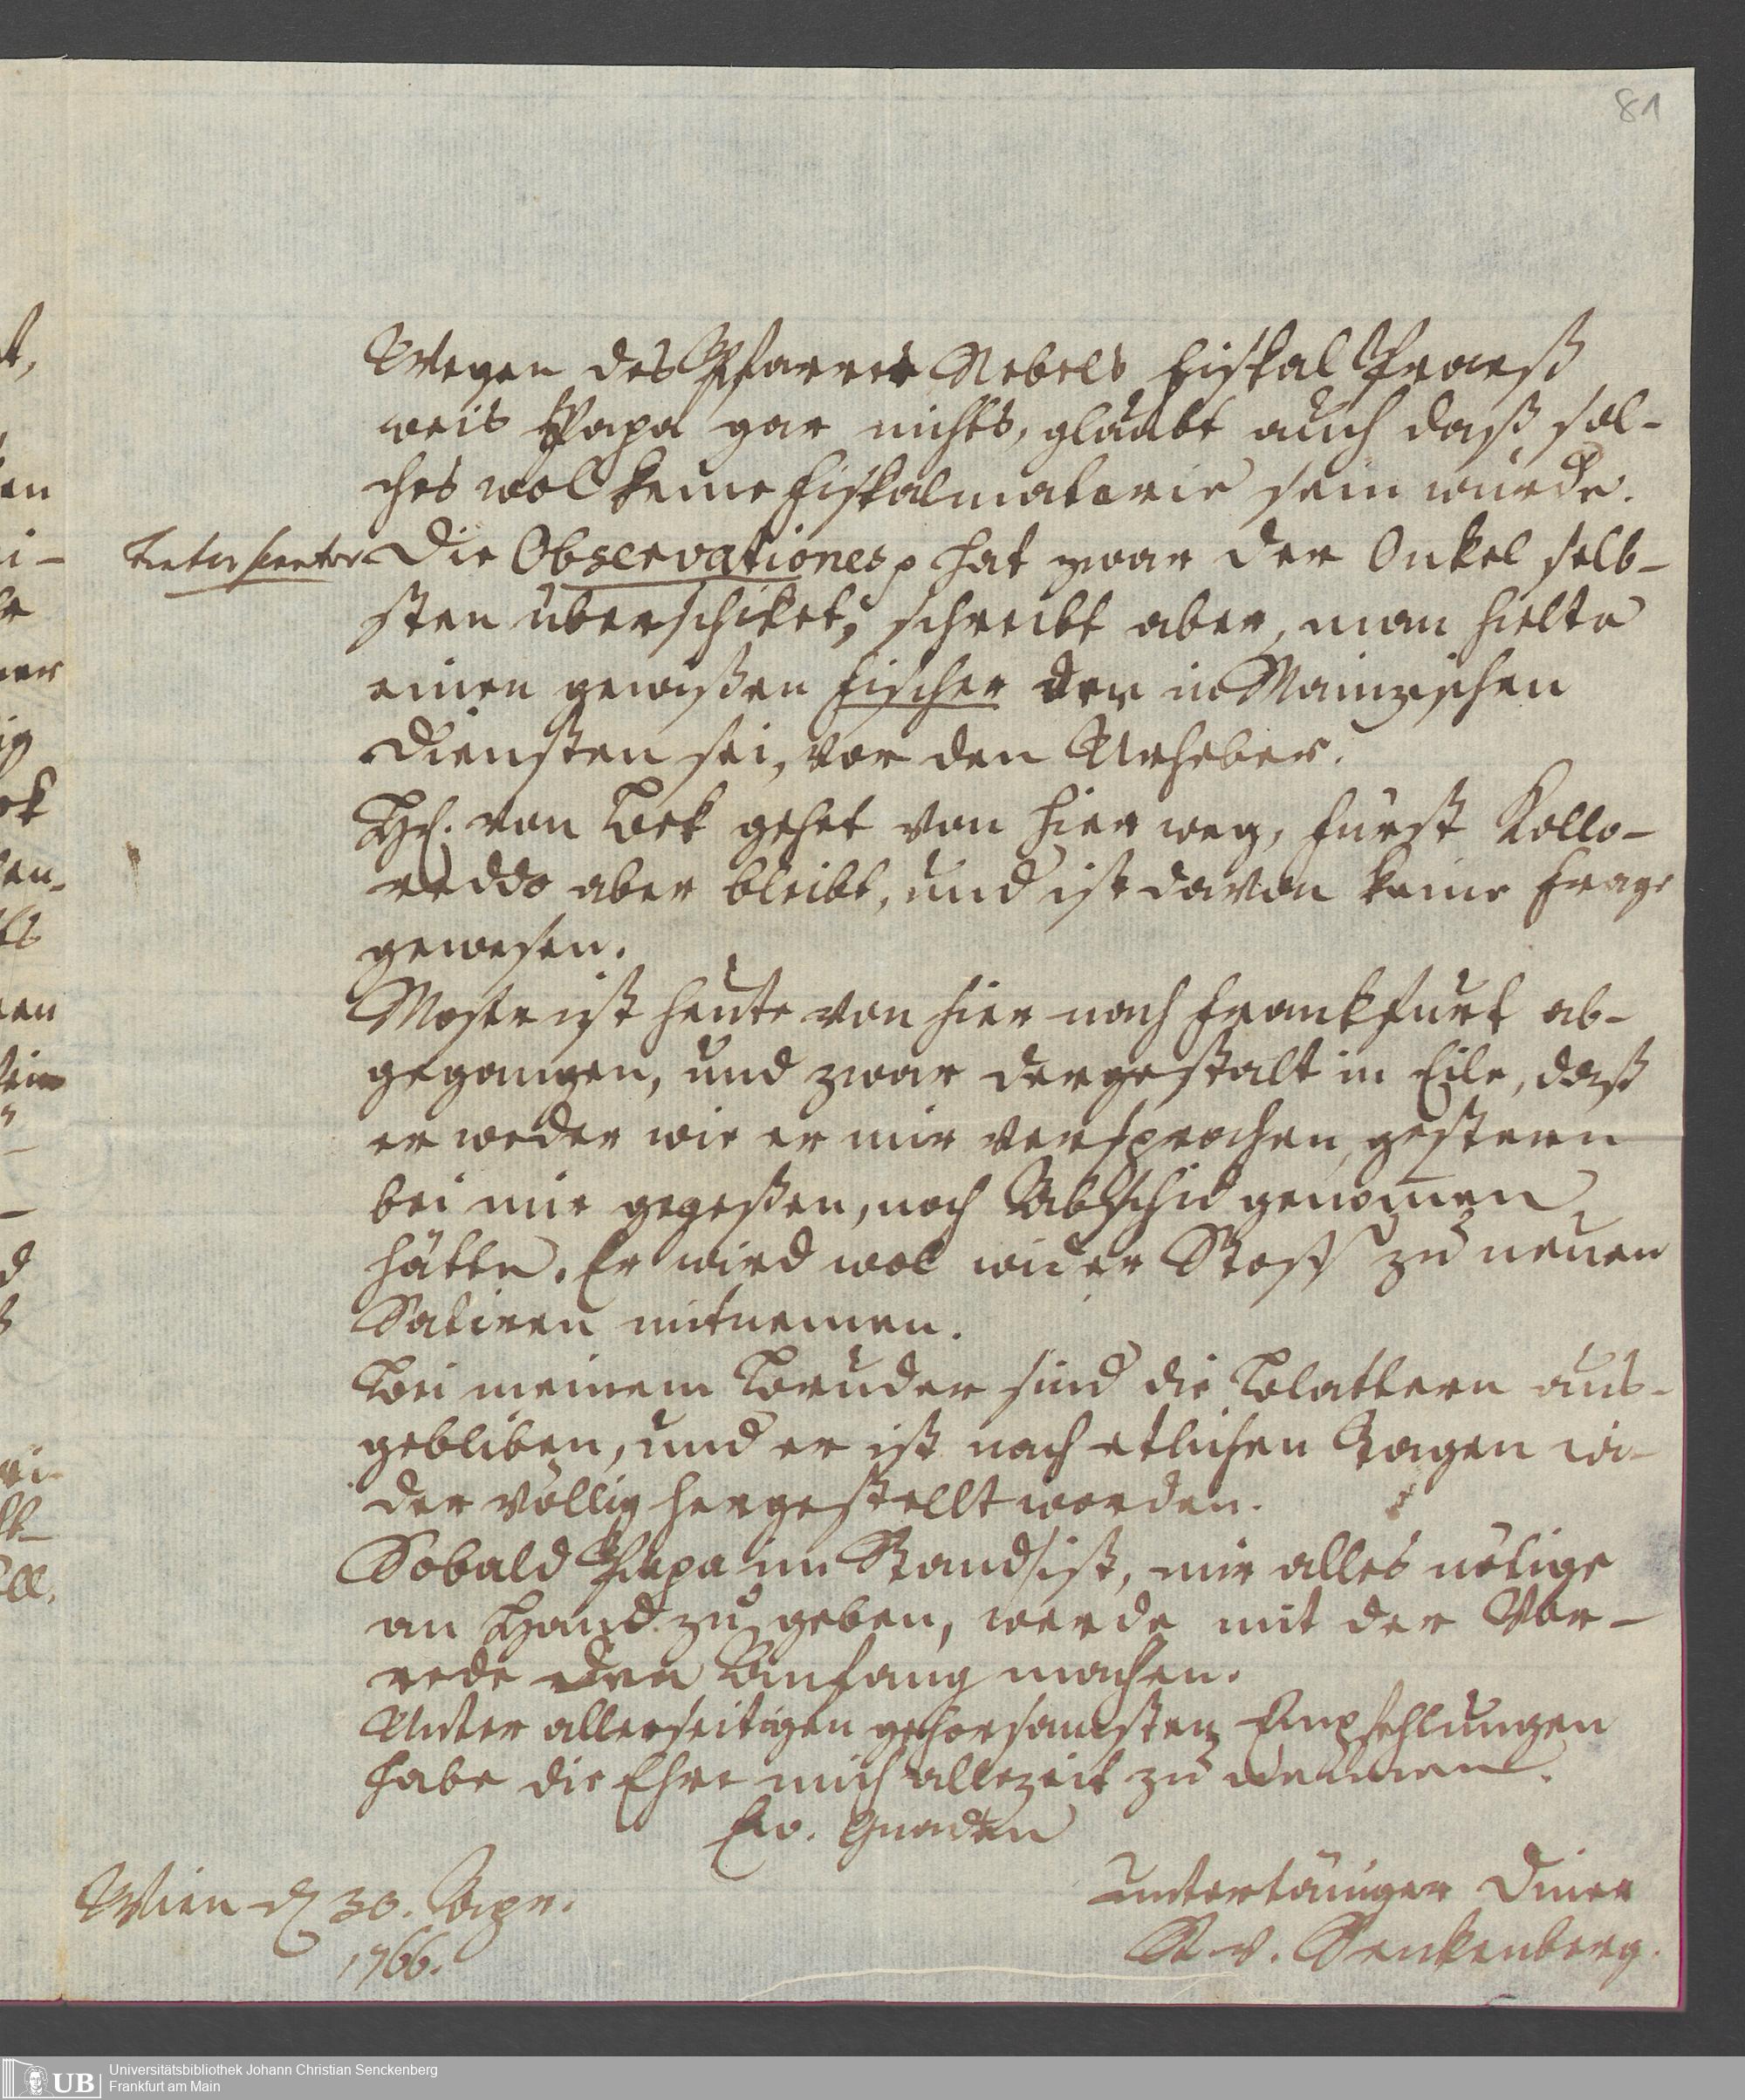 81
Wegen des Pfarrer Nebels Fiskal Proceß
weis Papa gar nichts, glaubt auch daß sol-
ches wol keine Fiskalmaterie sein würde.
Die Observationes p hat zwar der Onkel selb-
sten überschiket, schreibt aber, man hielte
einen gewißen Fischer der in Mainzischen
Diensten sei, vor den Urheber.
H. von Bek gehet von hier weg, Fürst Kollo-
reddo aber bleibt, und ist davon keine Frage
gewesen.
Moser ist heute von hier nach Frankfurt ab-
gegangen, und zwar dergestalt in Eile, daß
er weder wie er mir versprochen, gestern
bei mir gegeßen, noch Abschid genommen
hätte. Er wird wol wider Stoff zu neuen
Satiren mitnemen.
Bei meinem Bruder sind die Blattern aus-
gebliben, und er ist nach etlichen Tagen wi-
der völlig hergestellt worden.
Sobald Papa im Stand ist, mir alles nötige
an Hand zu geben, werde mit der Vor-
rede den Anfang machen.
Unter allerseitigen gehorsamsten Empfehlungen
habe die Ehre mich allezeit zu nennen.
Ew. Gnaden
Wien d 30. Apr.
1766.
untertäniger Diner
R v. Senkenberg.
UB
Universitätsbibliothek Johann Christian Senckenberg
Frankfurt am Main